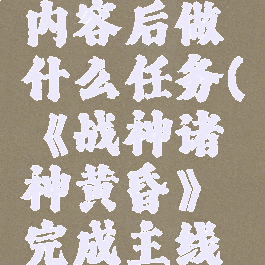 内容后做
什么任务(
《战神诸
神黄昏》
完成主线